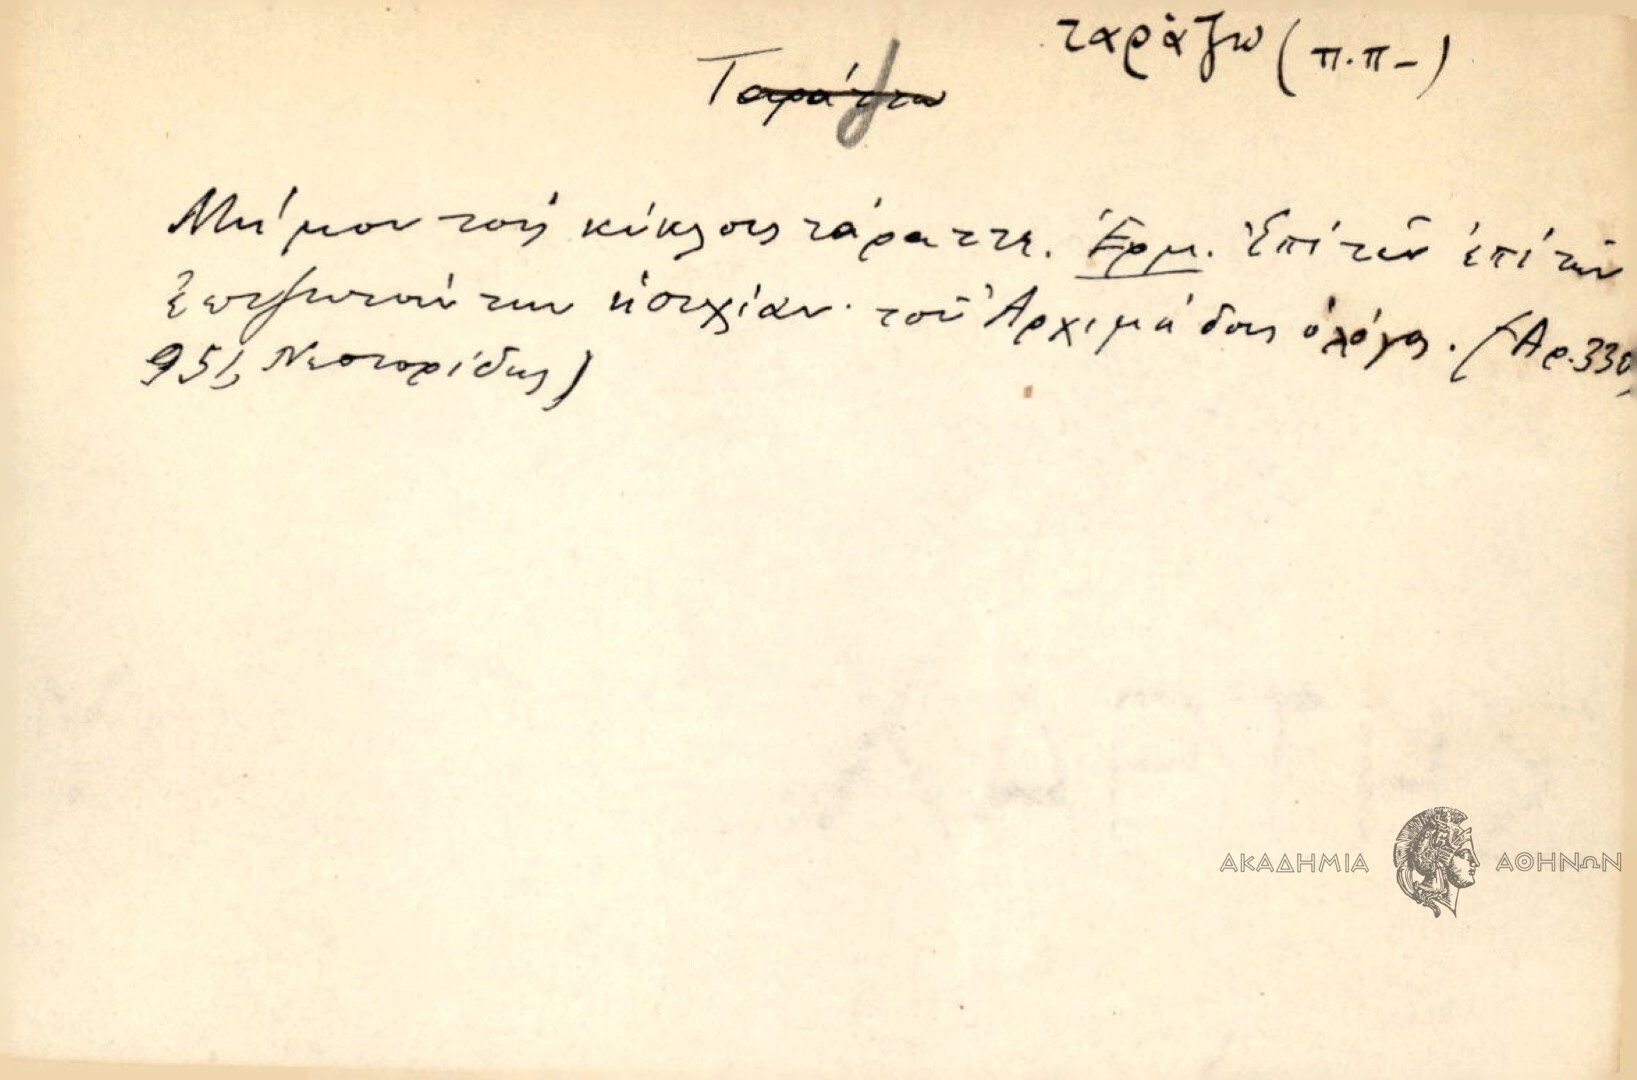 ταράζω (π.π-)
Ταράζω
Μή μου τούς κύκλους τάραττε. Ἑρμ. Ἐπί τῶν ἐπί τῶν
τήν ἡσυχίαν. τοῦ Ἀρχιμήδους ὁ λόγος. (Ἀρ. 330,
951, Νεστορίδης)
ΑΚΑΔΗΜΙΑ ΑΘΗΝΩΝ